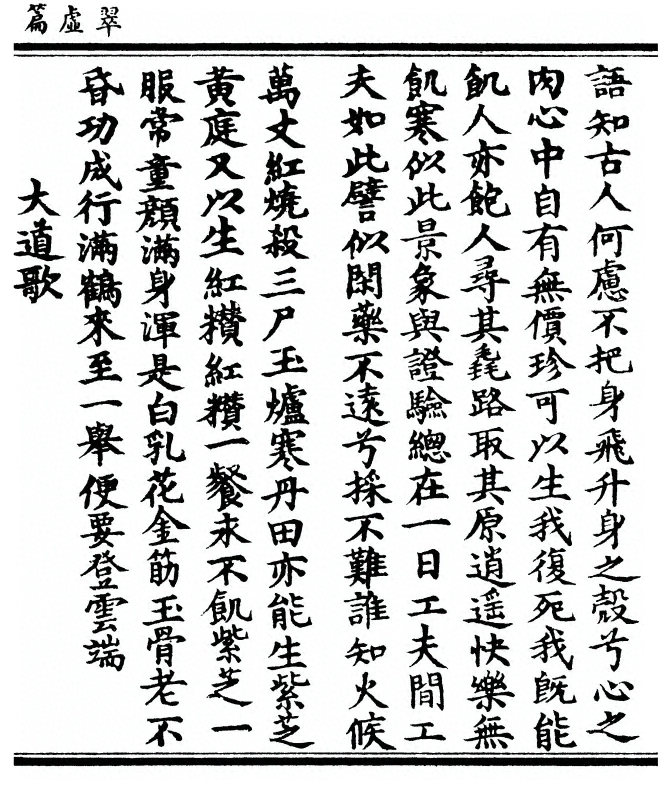 翠虛篇
語知古人何慮不把身飛升身之殼兮心之
肉心中自有無價珍可以生我復死我旣能
飢人亦飽人尋其毳路取其原逍遥快樂無
飢寒似此景象與證驗總在一日工夫間工
夫如此譬似閑藥不遠兮採不難誰知火候
萬丈紅燒殺三尸玉爐寒丹田亦能生紫芝
黄庭又以生紅䊩紅䊩一餐永不飢紫芝一
服常童顔滿身渾是白乳花金筋玉骨老不
昏功成行滿鶴來至一舉便要登雲端
大道歌